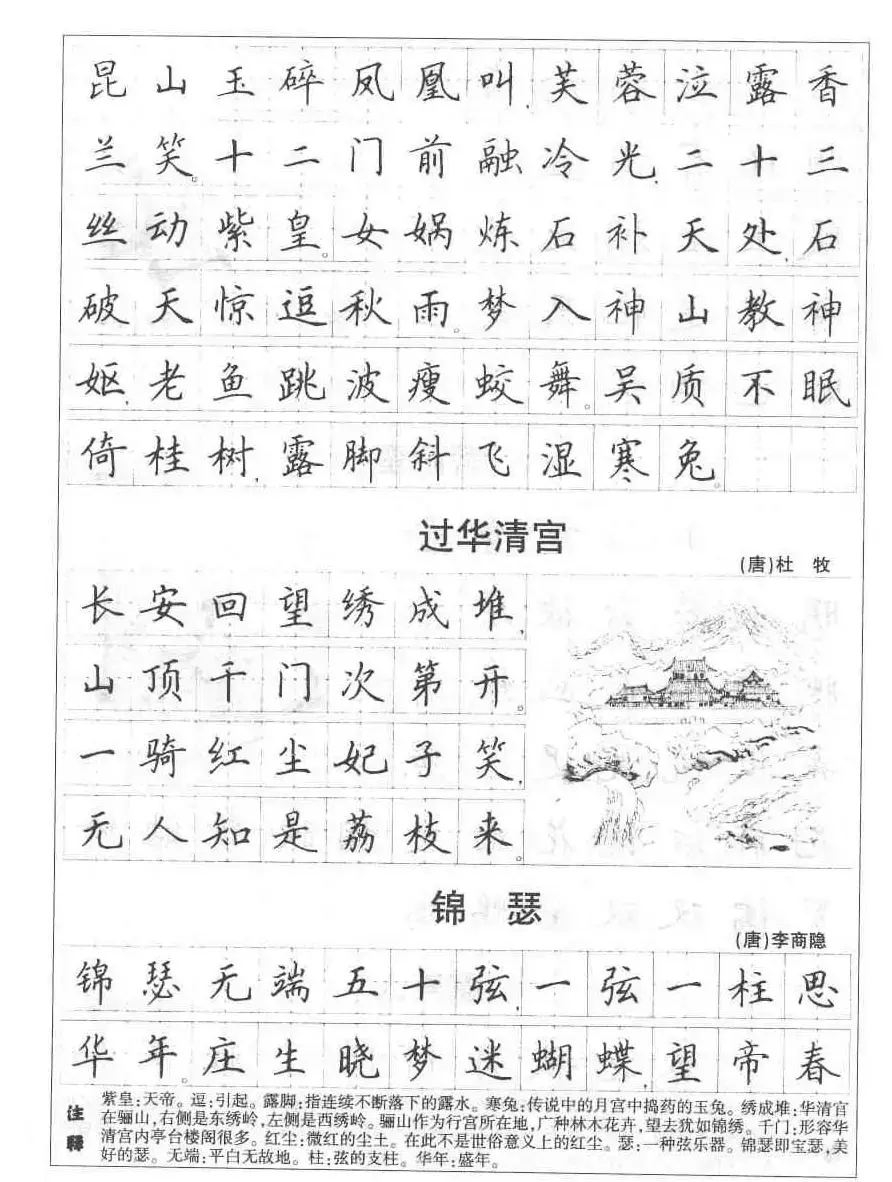 昆山玉碎凤凰叫,芙蓉泣露香
兰笑。十二门前融冷光,二十三
丝动紫皇。女娲炼石补天处,石
破天惊逗秋雨。梦入神山教神
妪,老鱼跳波瘦蛟舞。吴质不眠
倚桂树,露脚斜飞湿寒兔。
过华清宫
(唐)杜 牧
长安回望绣成堆,
山顶千门次第开。
一骑红尘妃子笑,
无人知是荔枝来。
锦 瑟
(唐)李商隐
锦瑟无端五十弦,一弦一柱思
华年。庄生晓梦迷蝴蝶,望帝春
注释
紫皇:天帝。逗:引起。露脚:指连续不断落下的露水。寒兔:传说中的月宫中捣药的玉兔。绣成堆:华清宫
在骊山,右侧是东绣岭,左侧是西绣岭。骊山作为行宫所在地,广种林木花卉,望去犹如锦绣。千门:形容华
清宫内亭台楼阁很多。红尘:微红的尘土。在此不是世俗意义上的红尘。瑟:一种弦乐器。锦瑟即宝瑟,美
好的瑟。无端:平白无故地。柱:弦的支柱。华年:盛年。